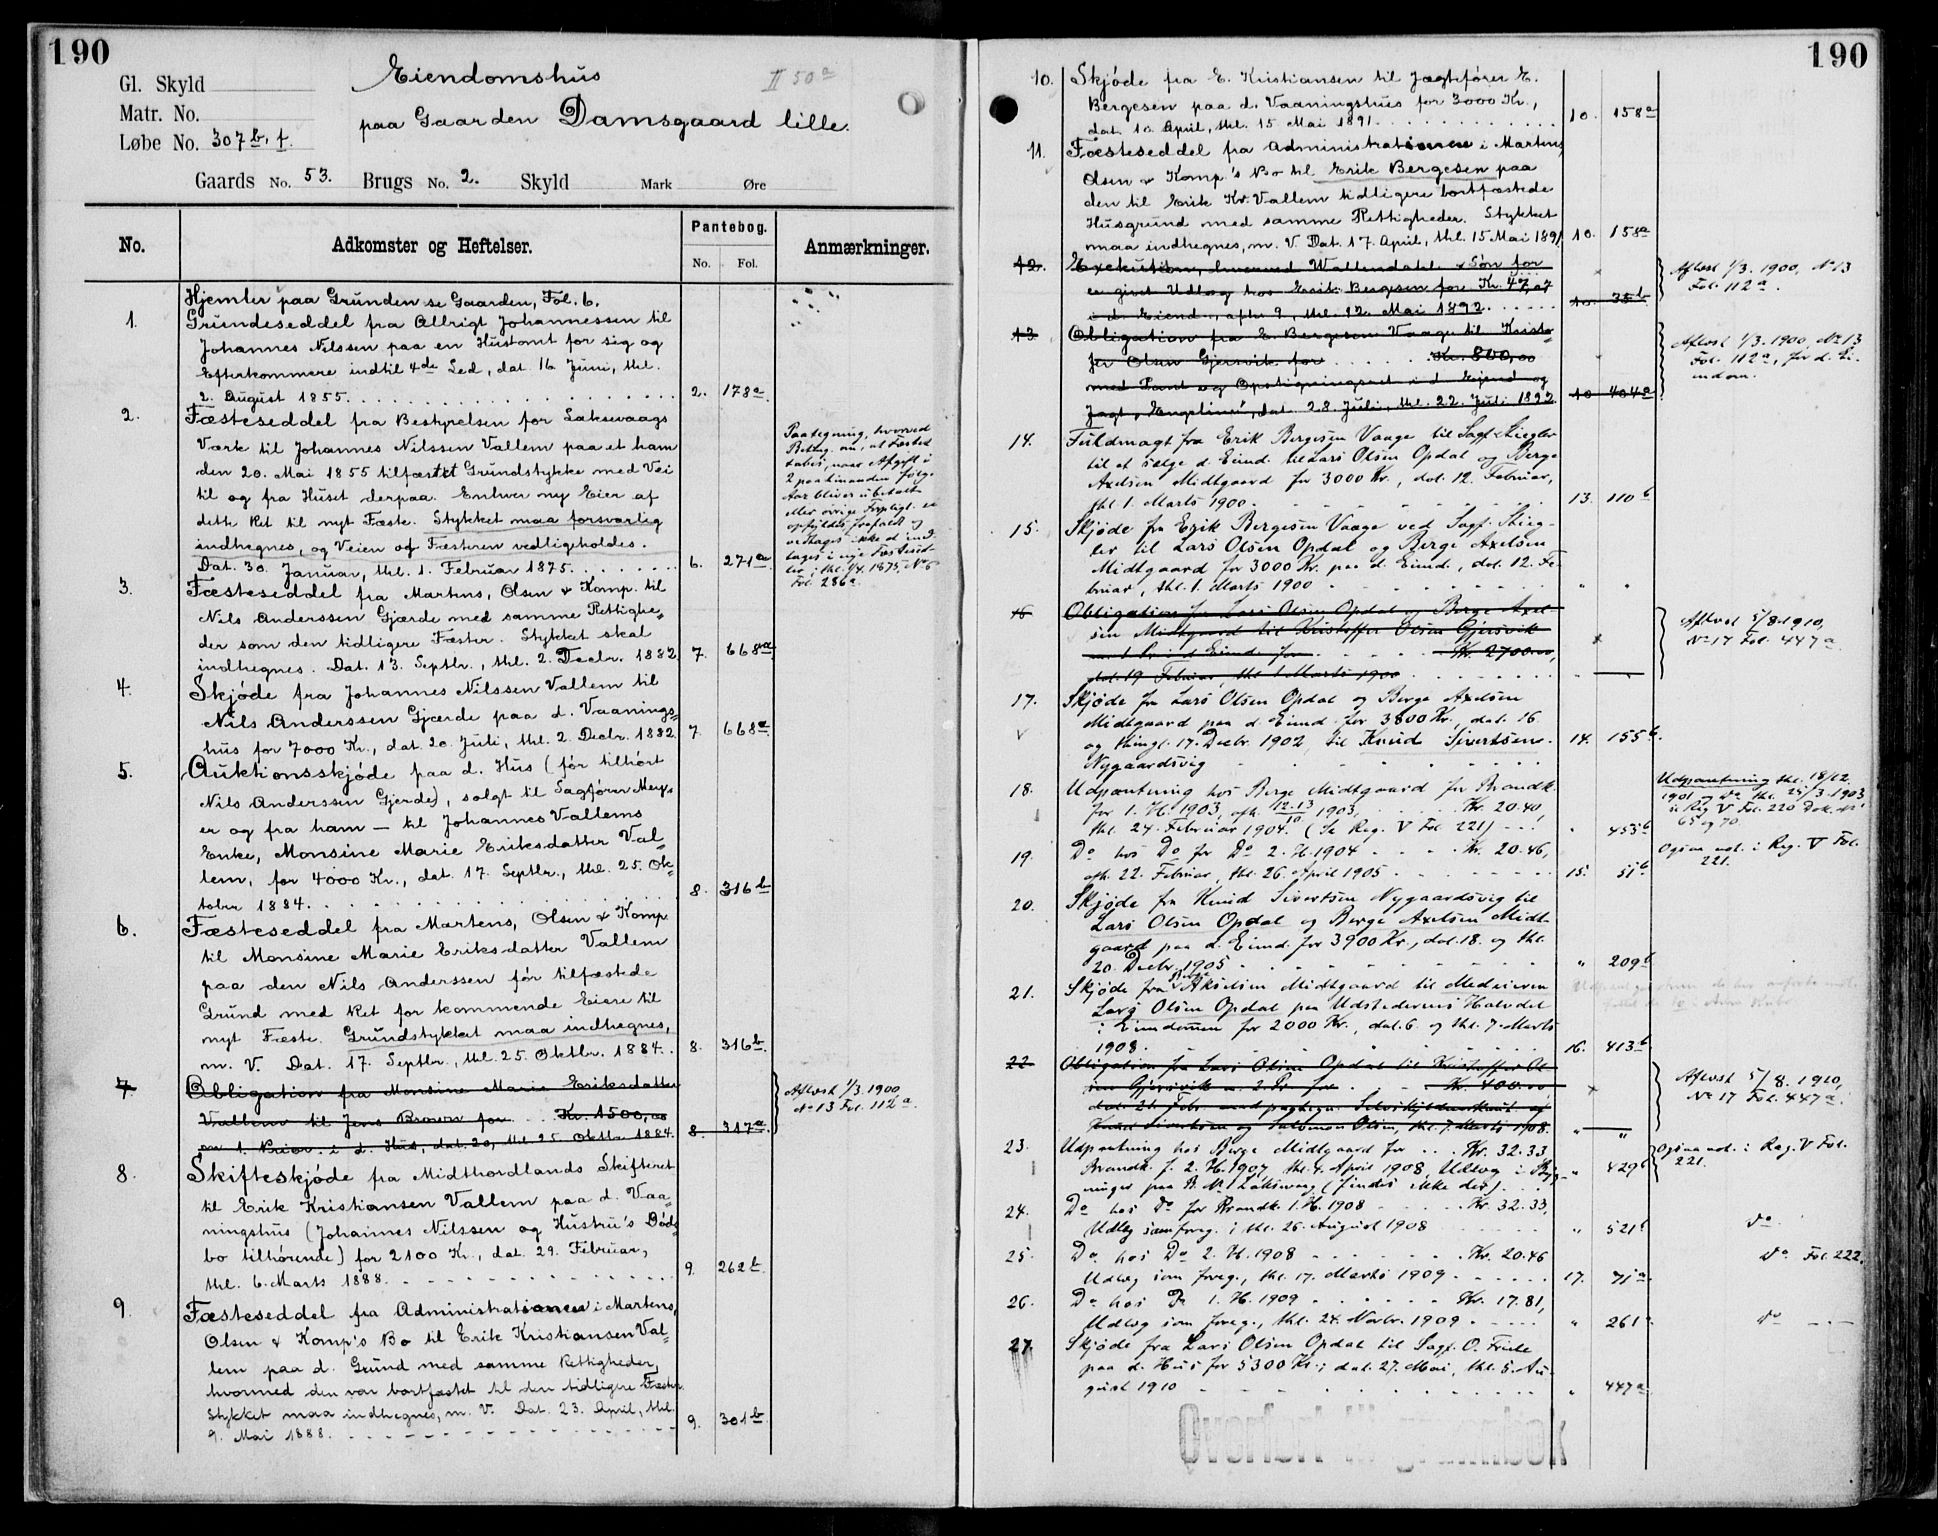 190
Gl. Skyld
Matr. No.
Løbe No. 307 b, f.
Eiendomshus
II 50 a
paa Gaarden Damsgaard lille.
Gaards No. 53. Brugs No. 2. Skyld Mark Øre
No. Adkomster og Heftelser. Pantebog. Anmærkninger.
No. Fol.
Hjemler paa Grunden se Gaarden, Fol. 6.
1. Grundeseddel fra Albrigt Johannessen til
Johannes Nilssen paa en Hustomt for sig og
Efterkommere indtil 4de Led, dat. 16 Juni, thl.
2. August 1855. 2. 178 a
2. Fæsteseddel fra Bestyrelsen for Laksevaags
Værk til Johannes Nilssen Vallem paa et ham
den 20. Mai 1855 tilfæstet Grundstykke med Vei
til og fra Huset derpaa. Enhver ny Eier af
dette Ret til nyt Fæste. Stykket maa forsvarlig
indhegnes, og Veien af Fæsteren vedligeholdes.
Dat. 30. Januar, thl. 1. Februar 1875. 6. 271 a
Paategning, hvorved
Betteg. om, at Fæsted
tabes, naar Afgift i
2 paa hinanden følge
Aar bliver ubetalt
eller øvrige Forpligt. ei
opfyldes, frafaldt og
vedtages ikke at ind-
tages i nye Fæstesed-
ler; thl. 1/4. 1875, No 6
Fol. 286 a.
3. Fæsteseddel fra Martens, Olsen & Komp. til
Nils Anderssen Gjærde med samme Rettighe-
der som den tidligere Fæster. Stykket skal
indhegnes. Dat. 13. Septbr., thl. 2. Decbr. 1882. 7. 668 a
4. Skjøde fra Johannes Nilssen Vallem til
Nils Anderssen Gjærde paa d. Vaanings-
hus for 7000 Kr., dat. 20. Juli, thl. 2. Decbr. 1882. 7. 668 a
5. Auktionsskjøde paa d. Hus (før tilhørt
Nils Anderssen Gjerde), solgt til Sagfører Mey-
er og fra ham — til Johannes Vallems
Enke, Monsine Marie Eriksdatter Val-
lem, for 4000 Kr., dat. 17. Septbr., thl. 25. Ok-
tober 1884. 8. 316 b
6. Fæsteseddel fra Martens, Olsen & Komp
til Monsine Marie Eriksdatter Vallem
paa den Nils Anderssen før tilfæstede
Grund med Ret for kommende Eiere til
nyt Fæste. Grundstykket maa indhegnes,
m. V. Dat. 17. Septbr., thl. 25. Oktbr. 1884. 8. 316 b.
7 Obligation fra Monsine Marie Eriksdatter
Vallem til Jens Brown for Kr. 1500,00
m. 1. Prior. i d. Hus, dat. 20, thl. 25. Oktbr. 1884. 8. 317 a.
Aflæst 1/3. 1900,
No 13 Fol. 112 a.
8. Skifteskjøde fra Midthordlands Skifteret
til Erik Kristiansen Vallem paa d. Vaa-
ningshus (Johannes Nilssen og Hustru's Døds-
bo tilhørende) for 2100 Kr., dat. 29. Februar,
thl. 6. Marts 1888. 9. 262 b.
9. Fæsteseddel fra Administrationen i Martens,
Olsen & Komp's Bo til Erik Kristiansen Val-
lem paa d. Grund med samme Rettigheder,
hvormed den var bortfæstet til den tidligere Fæster.
Stykket maa indhegnes, m. V. Dat. 23. April, thl.
9. Mai 1888. 9. 301 b.
190
10. Skjøde fra E. Kristiansen til Jagtefører E.
Bergesen paa d. Vaaningshus for 3000 Kr.,
dat. 10. April, thl. 15 Mai 1891. 10. 158 a
11. Fæsteseddel fra Administrationen i Martens,
Olsen & Komp's Bo til Erik Bergesen paa
den til Erik Kr. Vallem tidligere bortfæstede
Husgrund med samme Rettigheder. Stykket
maa indhegnes, m. V. Dat. 17. April, thl. 15 Mai 1891 10. 158 a
12. Exekution, hvorved Wallendahl & Søn for
er givet Udlæg hos Erik Bergesen for Kr. 47,07
i d. Eiend., afh. 9, thl. 12. Mai 1892. 10. 35 b
Aflæst 1/3. 1900, No 13
Fol. 112 a.
13. Obligation fra E. Bergesen Vaage til Kristo-
fer Olsen Gjersvik for Kr. 800,00
med Pant og Opsigningsret i d. Eiend og
Jagt "Engeline", dat. 28. Juli, thl. 22. Juli 1893 10 404 a
Aflæst 1/3. 1900, No 13
Fol. 112 a, for d. Ei-
endom.
14. Fuldmagt fra Erik Bergesen Vaage til Sagf. Stiegler
til at sælge d. Eiend. til Lars Olsen Opdal og Berge
Axelsen Midtgaard for 3000 Kr., dat. 12. Februar,
thl. 1. Marts 1900. 13. 110 b
15. Skjøde fra Erik Bergesen Vaage ved Sagf. Stieg-
ler til Lars Olsen Opdal og Berge Axelsen
Midtgaard for 3000 Kr. paa d. Eiend., dat. 12. Fe-
bruar, thl. 1. Marts 1900 " "
16 Obligation fra Lars Olsen Opdal og Berge Axel-
sen Midtgaard til Kristoffer Olsen Gjersvik
m. 1. Pr. i d. Eiend. for Kr. 2700.00,
dat. 19. Februar, thl. 1. Marts 1900
Aflæst 5/8. 1910,
No 17 Fol. 447 a.
17. Skjøde fra Lars Olsen Opdal og Berge Axelsen
Midtgaard paa d. Eiend. for 3800 Kr., dat. 16.
og thingl. 17. Decbr. 1902, til Knud Sivertsen 14. 155 b.
Nygaardsvig
18. Udpantning hos Berge Midtgaard for Brandk.
for 1. H. 1903, afh. 12.13/10 1903, Kr. 20.40,
thl. 24. Februar 1904. (Se Reg. V Fol 221) " 453 b
Udpantning thl. 18/12
1901 og Do thl. 25/3. 1903
i Reg V Fol. 220 Dok. No
65 og 70
19. Do hos Do for Do 2. H. 1904 Kr. 20.46,
afh. 22. Februar, thl. 26. April 1905 15. 51 b
Ogsaa not. i Reg. V Fol.
221.
20. Skjøde fra Knud Sivertsen Nygaardsvig til
Lars Olsen Opdal og Berge Axelsen Midt-
gaard paa d. Eiend. for 3900 Kr., dat. 18. og thl.
20. Decbr. 1905 " 209 b
21. Skjøde fra Berge Akselsen Midtgaard til Medeieren
Lars Olsen Opdal paa Udstederens Halvdel
i Eiendommen for 2000 Kr., dat. 6. og thl. 7. Marts
1908. 16. 413 b
22 Obligation fra Lars Olsen Opdal til Kristoffer Ol-
sen Gjersvik m. 2. Pr. for Kr. 400.00
dat. 21. Febr. med paategn. Selvskyldnerkaut. af
Knud Sivertsen og Salomon Olsen, thl. 7. Marts 1908. " "
Aflæst 5/8. 1910,
No 17 Fol. 447 a.
23. Udpantning hos Berge Midtgaard for Kr. 32.33
Brandk. f. 2. H. 1907, thl. 4. April 1908, Udlæg i Byg-
ninger paa B. N. Laksevaag (findes ikke der) " 429 b
Ogsaa not. i Reg. V Fol.
221.
24. Do hos Do for Brandk. 1. H. 1908 Kr. 32.33,
Udlæg som foreg. thl. 26. August 1908 " 521 b
Do
25. Do hos Do 2. H. 1908 Kr. 20.46
Udlæg som foreg., thl. 17. Marts 1909 17. 71 a
Do Fol. 222.
26. Do hos Do 1. H. 1909 Kr. 17.81,
Udlæg som foreg., thl. 24. Novbr. 1909 " 261
Do
27. Skjøde fra Lars Olsen Opdal til Sagf. O. Friele
paa d. Hus for 5300 Kr., dat. 27. Mai, thl. 5. Au-
gust 1910 " 447 a
Overført til grunnbok